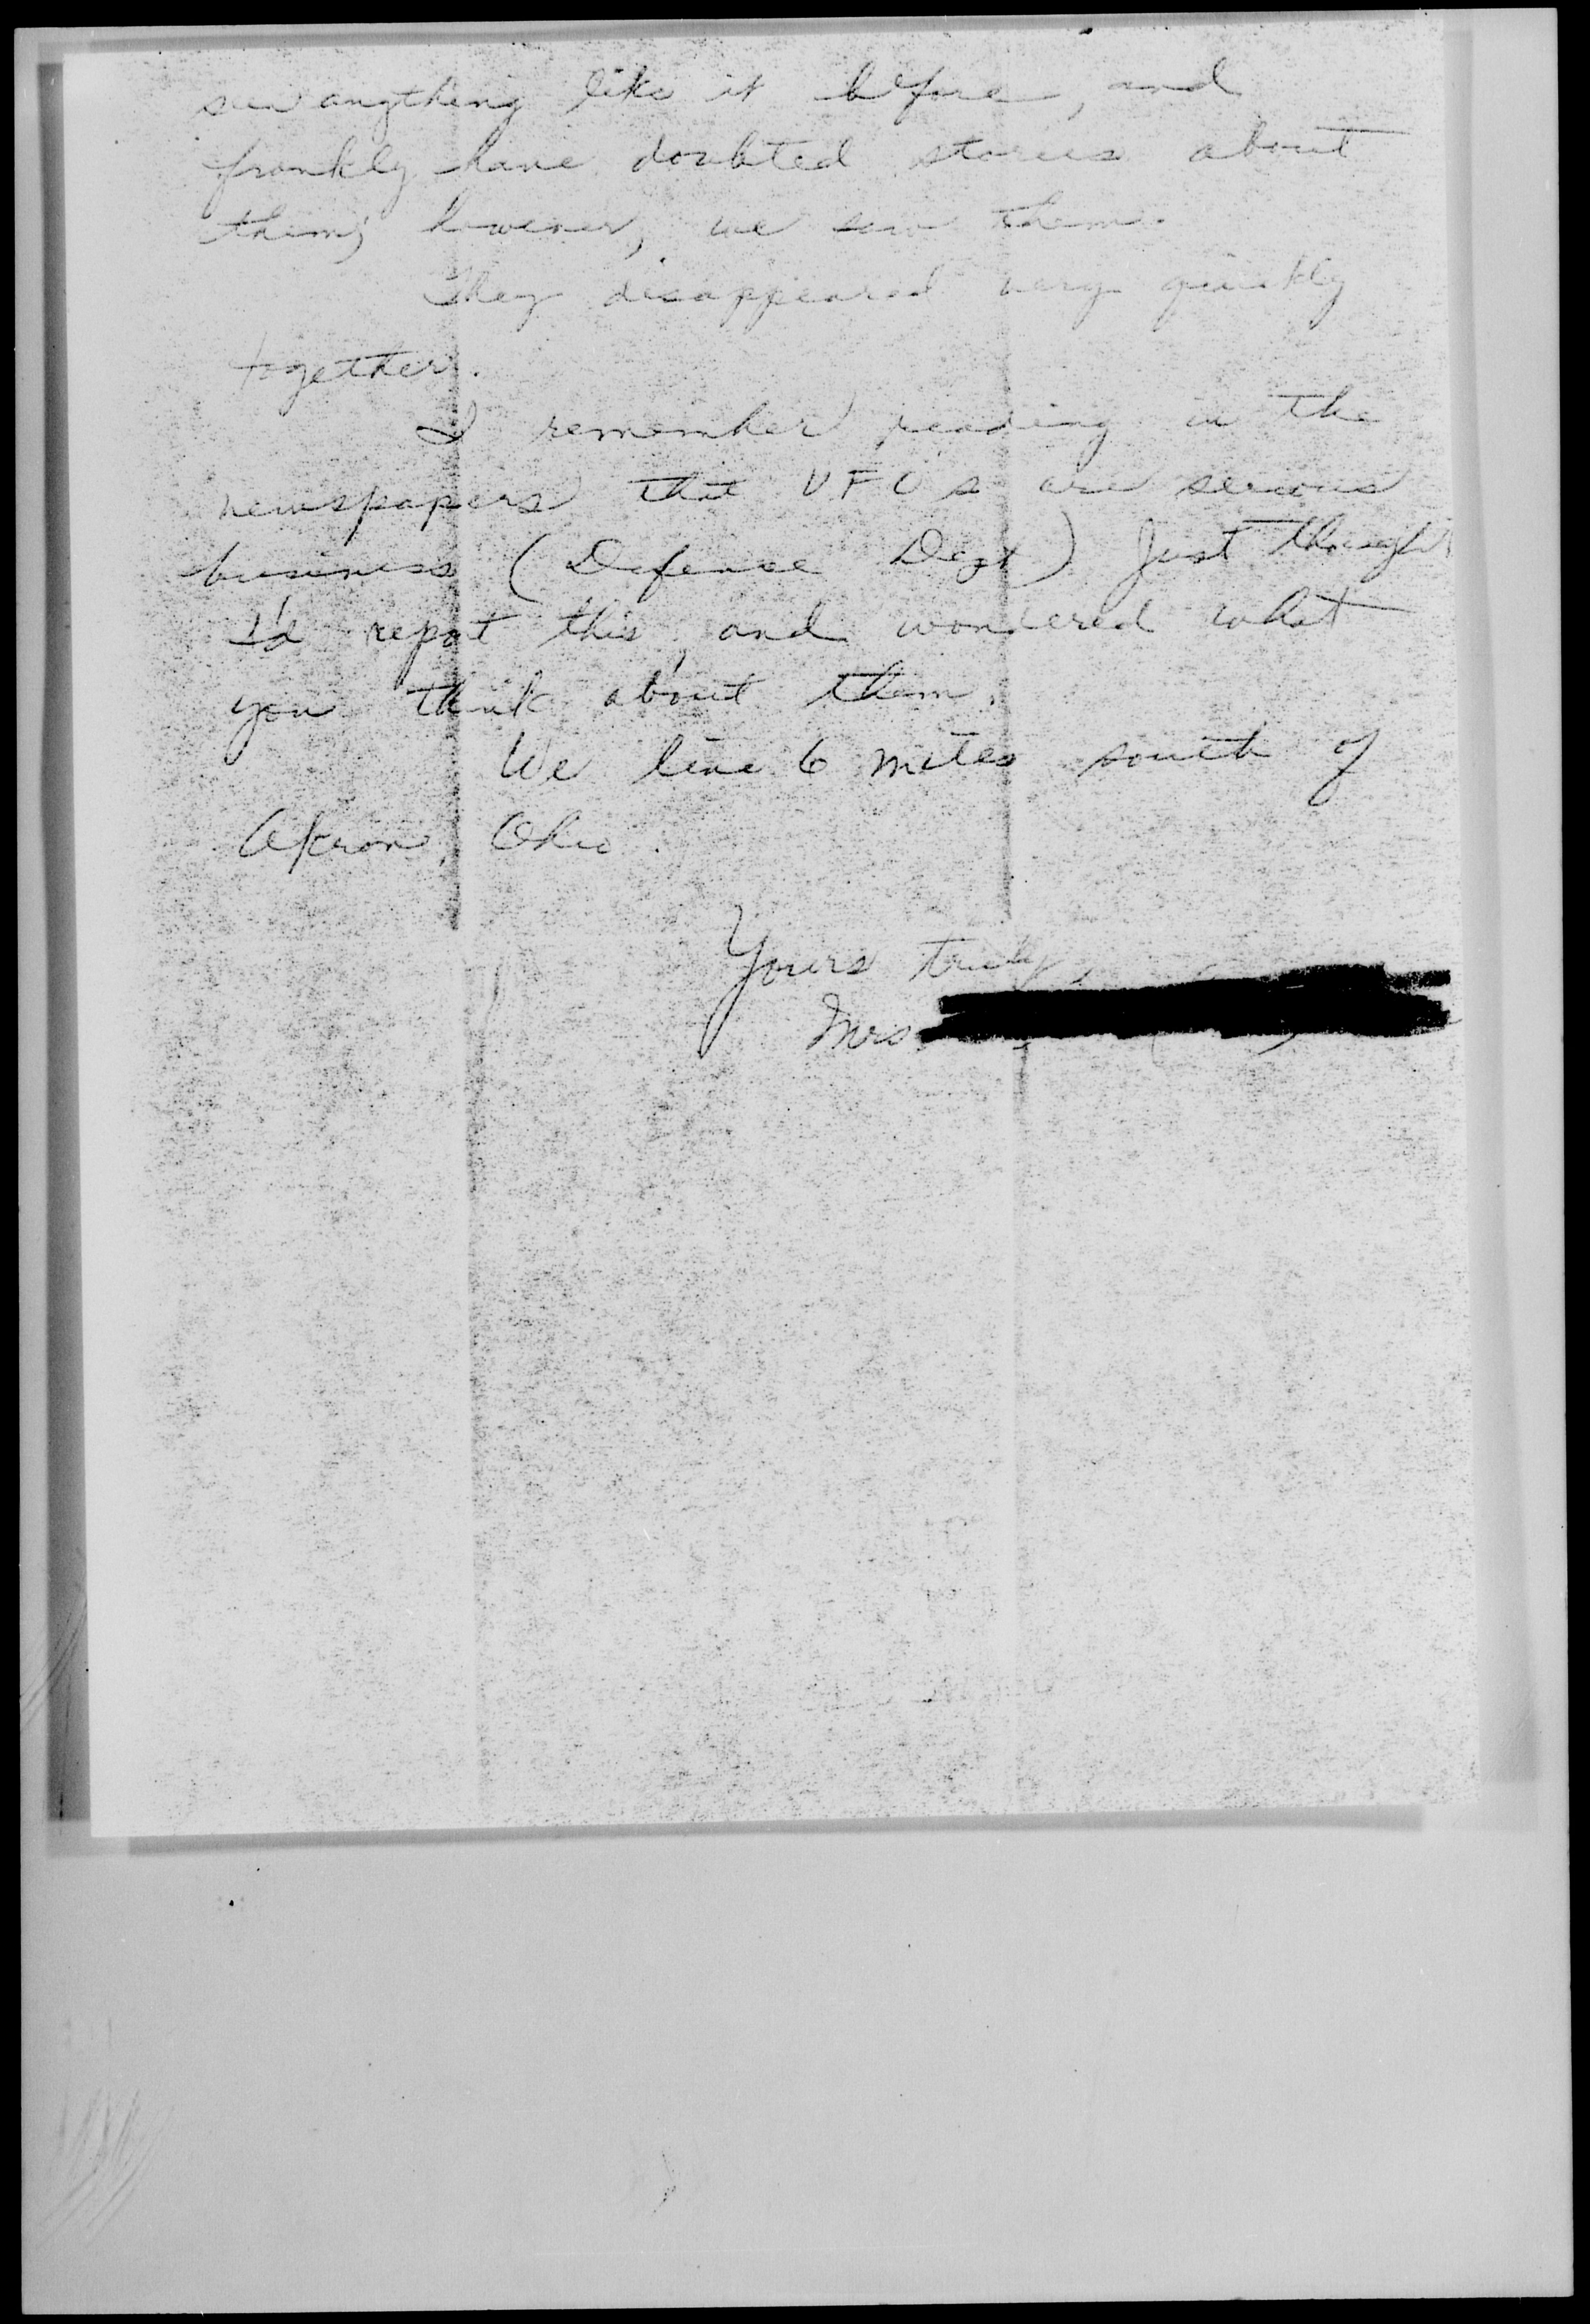 seen anything like it before, and
frankly have doubted stories about
them; however, we saw them.
They disappeared very quickly
together.
I remember reading in the
newspapers that UFOs are serious
business (Defense Dept) Just thought
I'd report this, and wondered what
you think about them.
We live 6 miles south of
Akron, Ohio.
Yours truly,
Mrs.